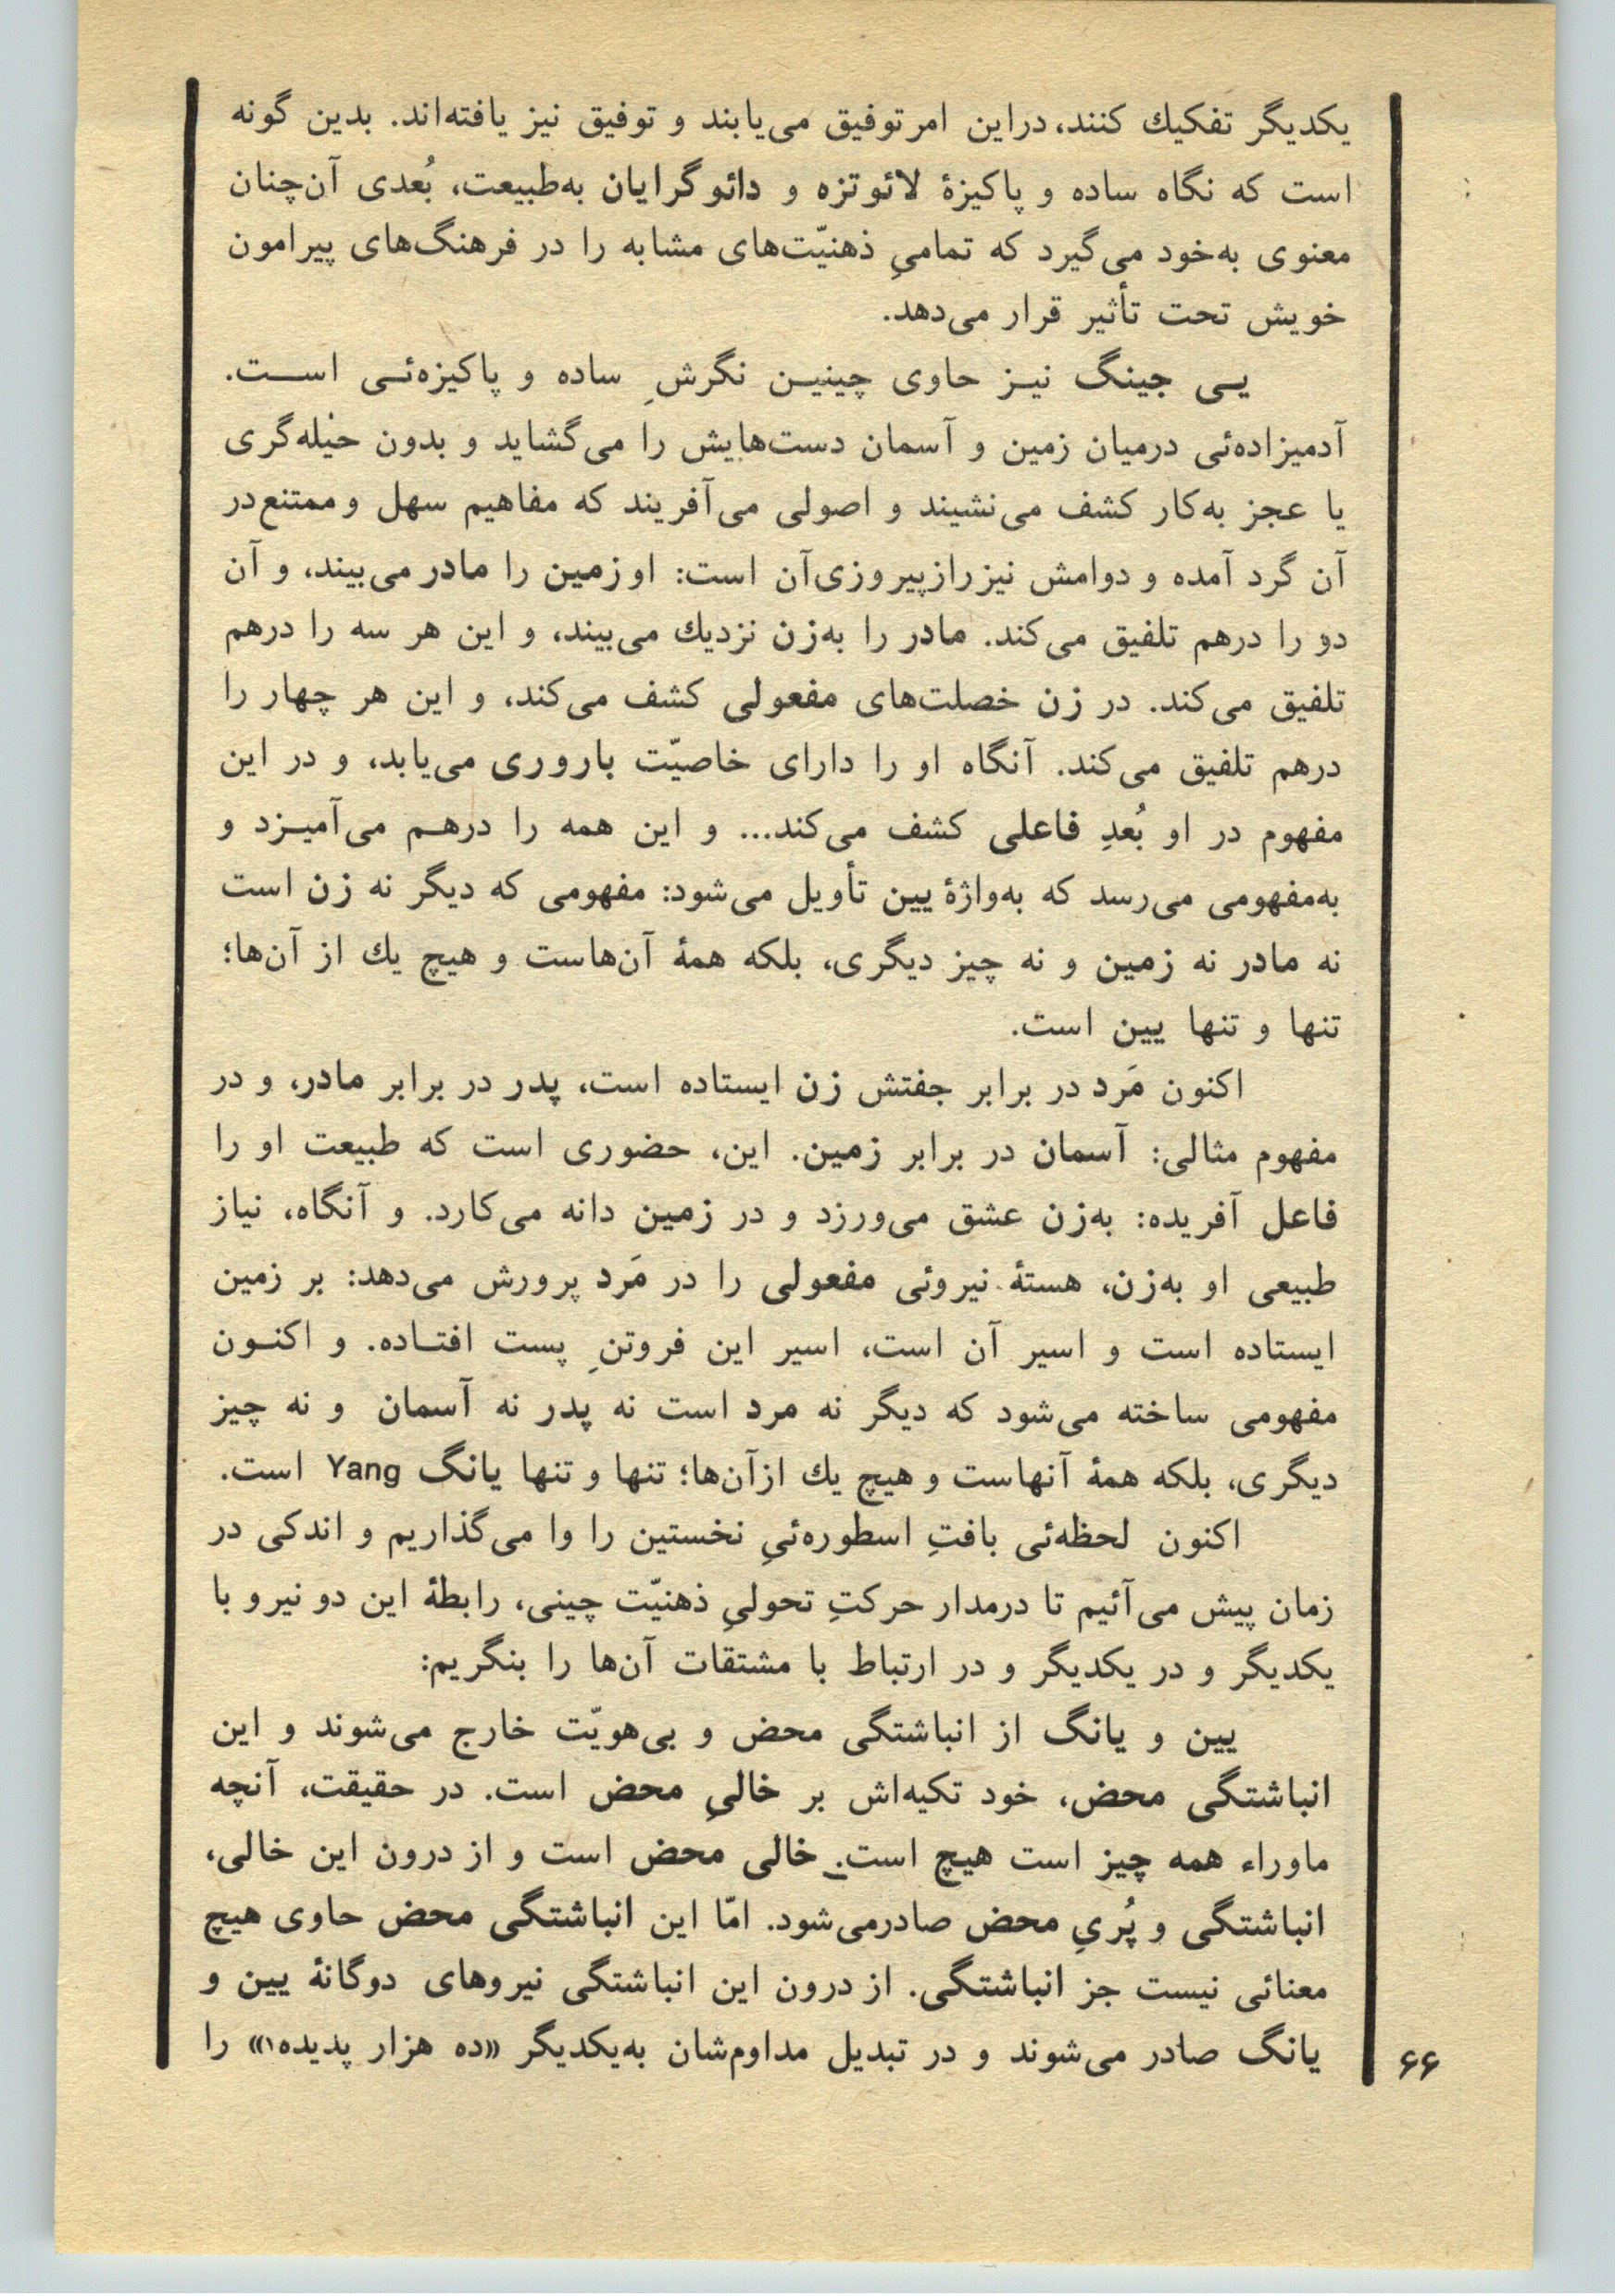 یکدیگر تفکیك کنند، دراین امر توفیق می‌یابند و توفیق نیز یافته‌اند. بدین گونه
است که نگاه ساده و پاکیزهٔ لائوتزه و دائوگرایان به‌طبیعت، بُعدی آن‌چنان
معنوی به‌خود می‌گیرد که تمامیِ ذهنیّت‌های مشابه را در فرهنگ‌های پیرامون
خویش تحت تأثیر قرار می‌دهد.
یـی جینگ نیـز حاوی چینیـن نگرشِ ساده و پاکیزه‌ئـی اسـت.
آدمیزاده‌ئی درمیان زمین و آسمان دست‌هایش را می‌گشاید و بدون حیله‌گری
یا عجز به‌کار کشف می‌نشیند و اصولی می‌آفریند که مفاهیم سهل و ممتنع در
آن گرد آمده و دوامش نیز راز پیروزی‌آن است: او زمین را مادر می‌بیند، و آن
دو را درهم تلفیق می‌کند. مادر را به‌زن نزدیك می‌بیند، و این هر سه را درهم
تلفیق می‌کند. در زن خصلت‌های مفعولی کشف می‌کند، و این هر چهار را
درهم تلفیق می‌کند. آنگاه او را دارای خاصیّت باروری می‌یابد، و در این
مفهوم در او بُعدِ فاعلی کشف می‌کند... و این همه را درهـم می‌آمیـزد و
به‌مفهومی می‌رسد که به‌واژهٔ یین تأویل می‌شود: مفهومی که دیگر نه زن است
نه مادر نه زمین و نه چیز دیگری، بلکه همهٔ آن‌هاست و هیچ یك از آن‌ها؛
تنها و تنها یین است.
اکنون مَرد در برابر جفتش زن ایستاده است، پدر در برابر مادر، و در
مفهوم مثالی: آسمان در برابر زمین. این، حضوری است که طبیعت او را
فاعل آفریده: به‌زن عشق می‌ورزد و در زمین دانه می‌کارد. و آنگاه، نیاز
طبیعی او به‌زن، هستهٔ نیروئی مفعولی را در مَرد پرورش می‌دهد: بر زمین
ایستاده است و اسیر آن است، اسیر این فروتنِ پست افتـاده. و اکنـون
مفهومی ساخته می‌شود که دیگر نه مرد است نه پدر نه آسمان و نه چیز
دیگری، بلکه همهٔ آنهاست و هیچ یك ازآن‌ها؛ تنها و تنها یانگ Yang است.
اکنون لحظه‌ئی بافتِ اسطوره‌ئیِ نخستین را وا می‌گذاریم و اندکی در
زمان پیش می‌آئیم تا درمدار حرکتِ تحولیِ ذهنیّت چینی، رابطهٔ این دو نیرو با
یکدیگر و در یکدیگر و در ارتباط با مشتقات آن‌ها را بنگریم:
یین و یانگ از انباشتگی محض و بی‌هویّت خارج می‌شوند و این
انباشتگی محض، خود تکیه‌اش بر خالیِ محض است. در حقیقت، آنچه
ماوراء همه چیز است هیچ است. خالی محض است و از درون این خالی،
انباشتگی و پُریِ محض صادرمی‌شود. امّا این انباشتگی محض حاوی هیچ
معنائی نیست جز انباشتگی. از درون این انباشتگی نیروهای دوگانهٔ یین و
یانگ صادر می‌شوند و در تبدیل مداوم‌شان به‌یکدیگر «ده هزار پدیده۱» را
۶۶